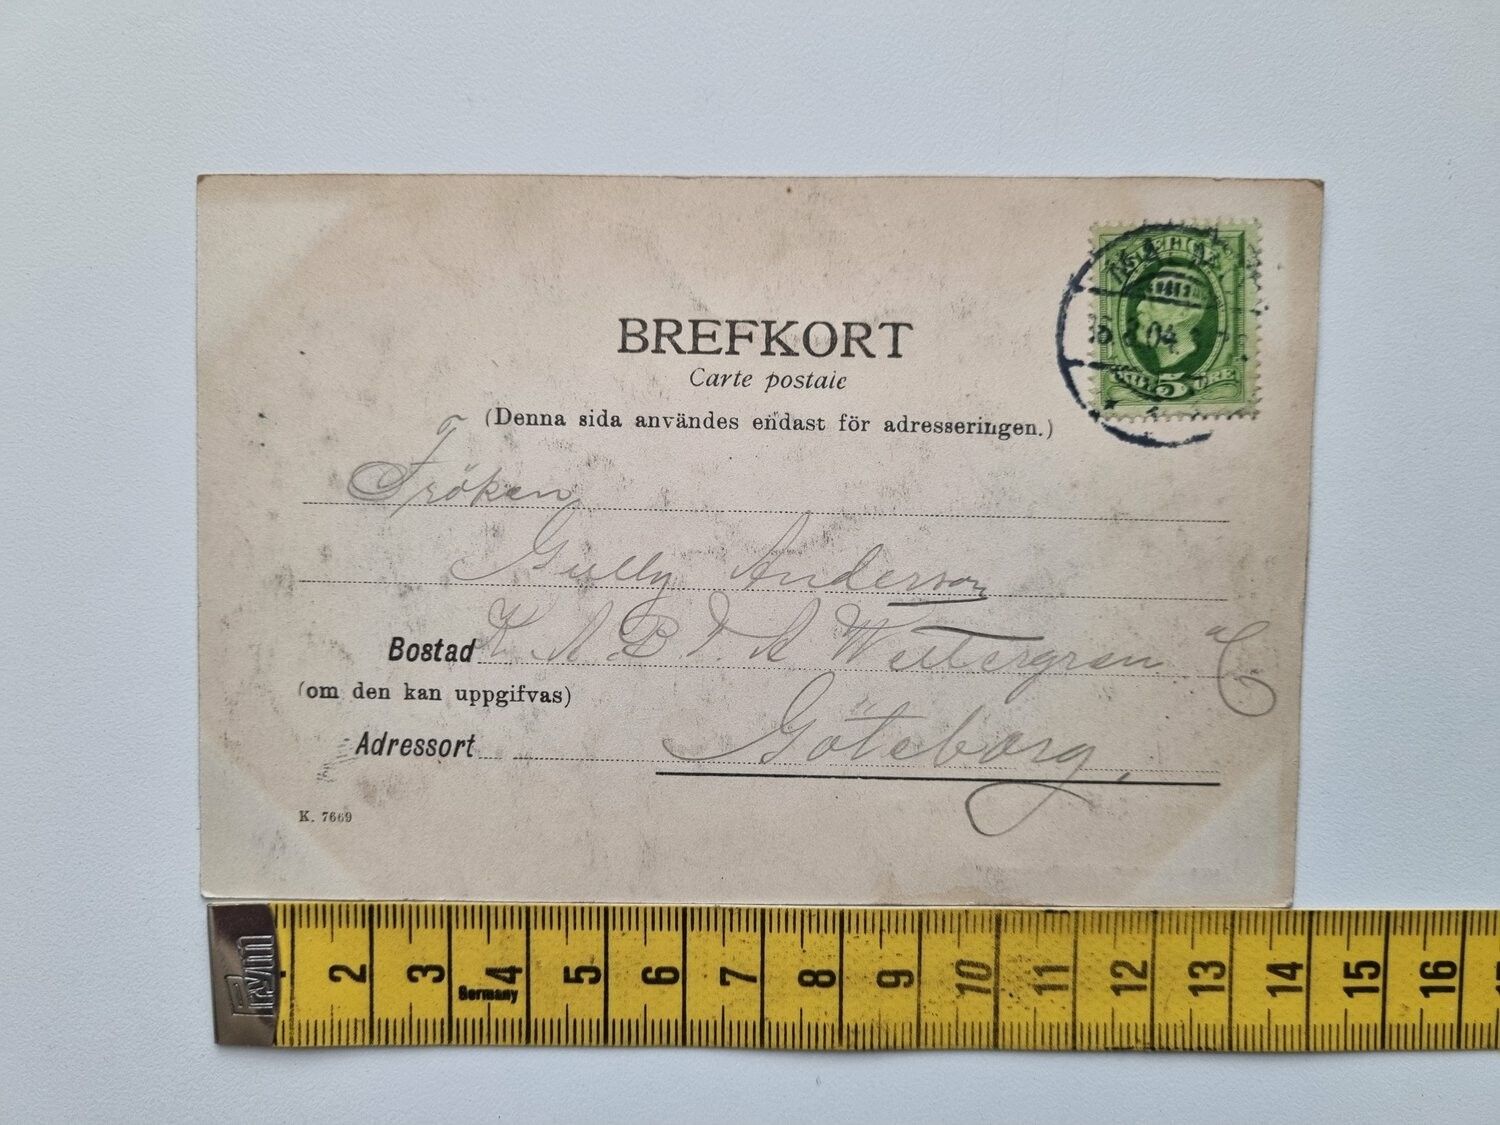 BREFKORT
Carte postale
(Denna sida användes endast för adresseringen.)
Fröken
Gully Anderson
Bostad K A B I A Westergren
(om den kan uppgifvas)
Adressort Göteborg,
K. 7669
04
5 ÖRE
Prym
2 3 4 5 6 7 8 9 10 11 12 13 14 15 16
Germany